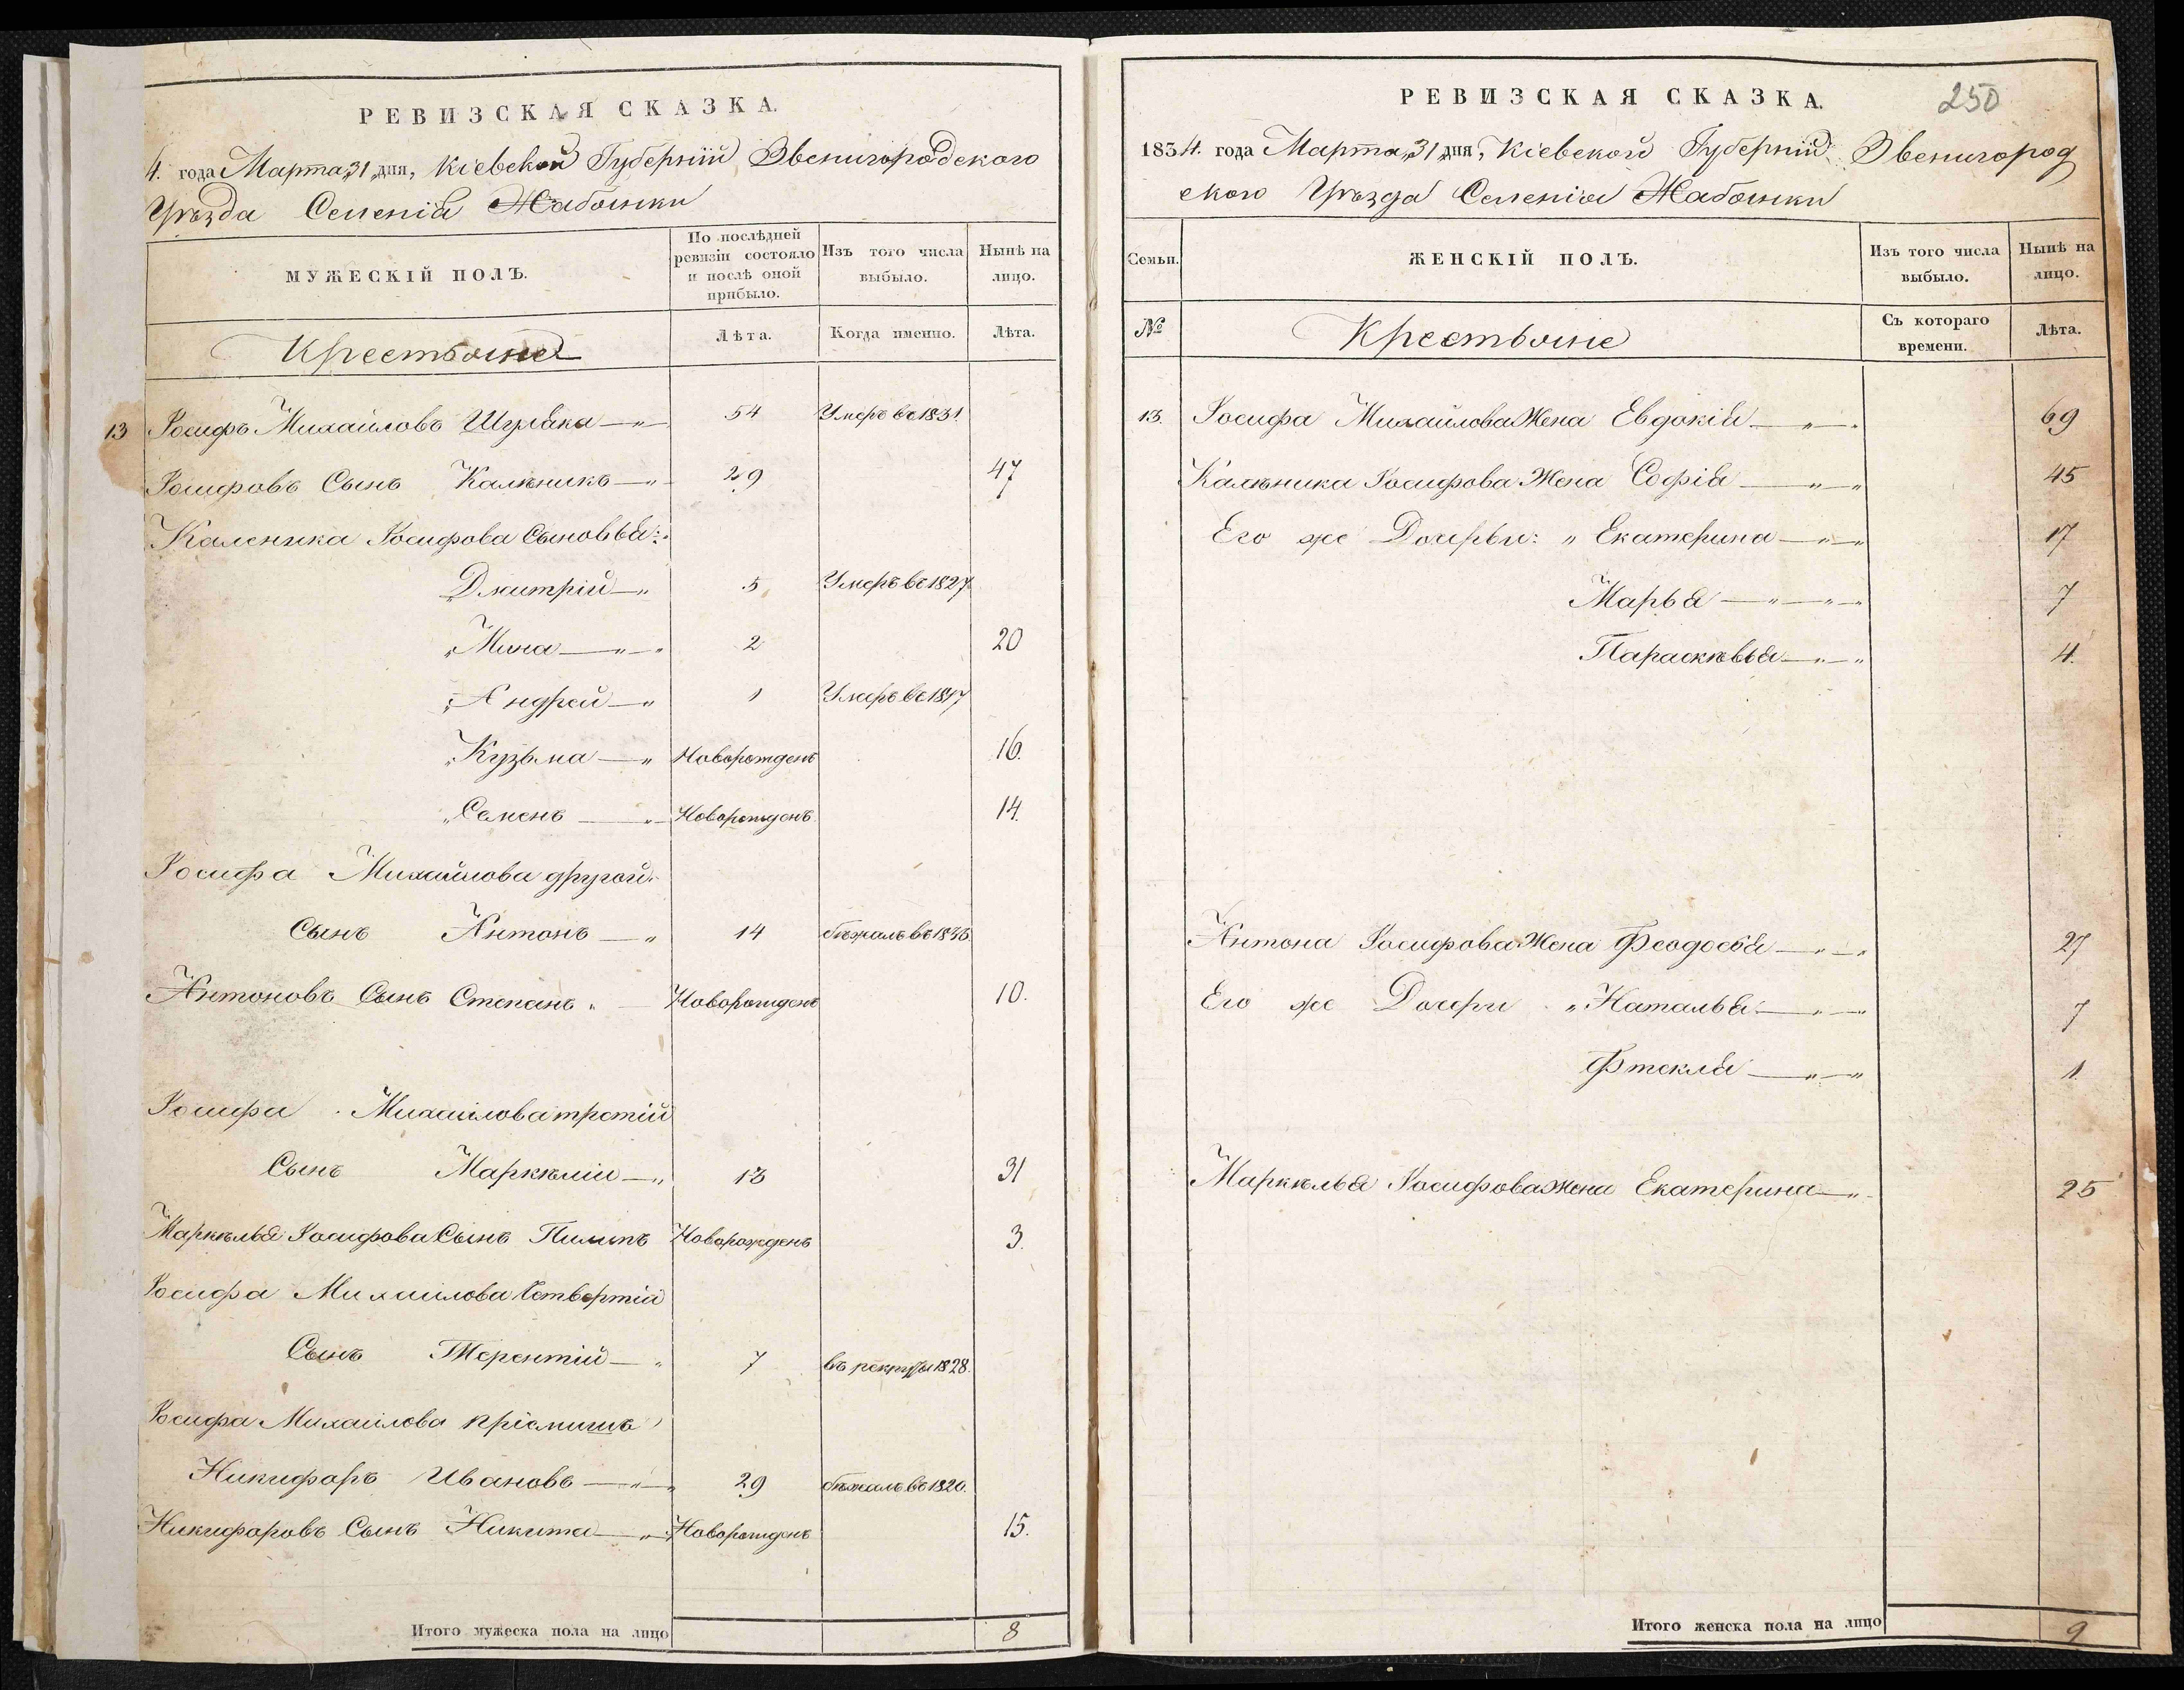 РЕВИЗСКАЯ СКАЗКА.
4. года Марта 31 дня, Кіевской Губерніи Звенигородского
Уѣзда Селенія Жабоянки
МУЖЕСКІЙ ПОЛЪ.
По послѣдней ревизіи состояло и послѣ оной прибыло.
Изъ того числа выбыло.
Нынѣ на лицо.
Крестьяне
Лѣта.
Когда именно.
Лѣта.
13 Іосифъ Михайловъ 54 Умеръ въ 1831.
Іосифовъ Сынъ Калѣникъ 29 47
Каленика Іосифова Сыновья:
Дмитрій 5 Умеръ въ 1827
Мина 2 20
Андрей 1 Умеръ въ 1817
Кузьма Новорожденъ 16.
Семенъ Новорожденъ 14.
Іосифа Михайлова другой
Сынъ Антонъ 14 бѣжалъ въ
Антоновъ Сынъ Степанъ Новорожденъ 10.
Іосифа Михайлова третій
Сынъ Маркѣлій 13 31
Маркѣлья Іосифова Сынъ Пилипъ Новорожденъ 3.
Іосифа Михайлова Четвертій
Сынъ Терентій 7 въ рекруты 1828.
Іосифа Михайлова пріемишъ
Никифоръ Ивановъ 29 бѣжалъ въ 1820.
Никифоровъ Сынъ Никита Новорожденъ 15.
Итого мужеска пола на лицо 8
РЕВИЗСКАЯ СКАЗКА. 250
1834. года Марта 31 дня, Кіевской Губерніи Звенигород
ского Уѣзда Селенія Жабоянки
Семьи.
ЖЕНСКІЙ ПОЛЪ.
Изъ того числа выбыло.
Нынѣ на лицо.
№
Крестьяне
Съ котораго времени.
Лѣта.
13. Іосифа Михайлова Жена Евдокія 69
Калѣника Іосифова Жена Софія 45
Его же Дочерьи: Екатерина 17
Марья 7
Параскѣвья 4.
Антона Іосифова Жена Феодосья 27
Его же Дочери Наталья 7
Фтекля 1
Маркѣлья Іосифова жена Екатерина 25
Итого женска пола на лицо 9